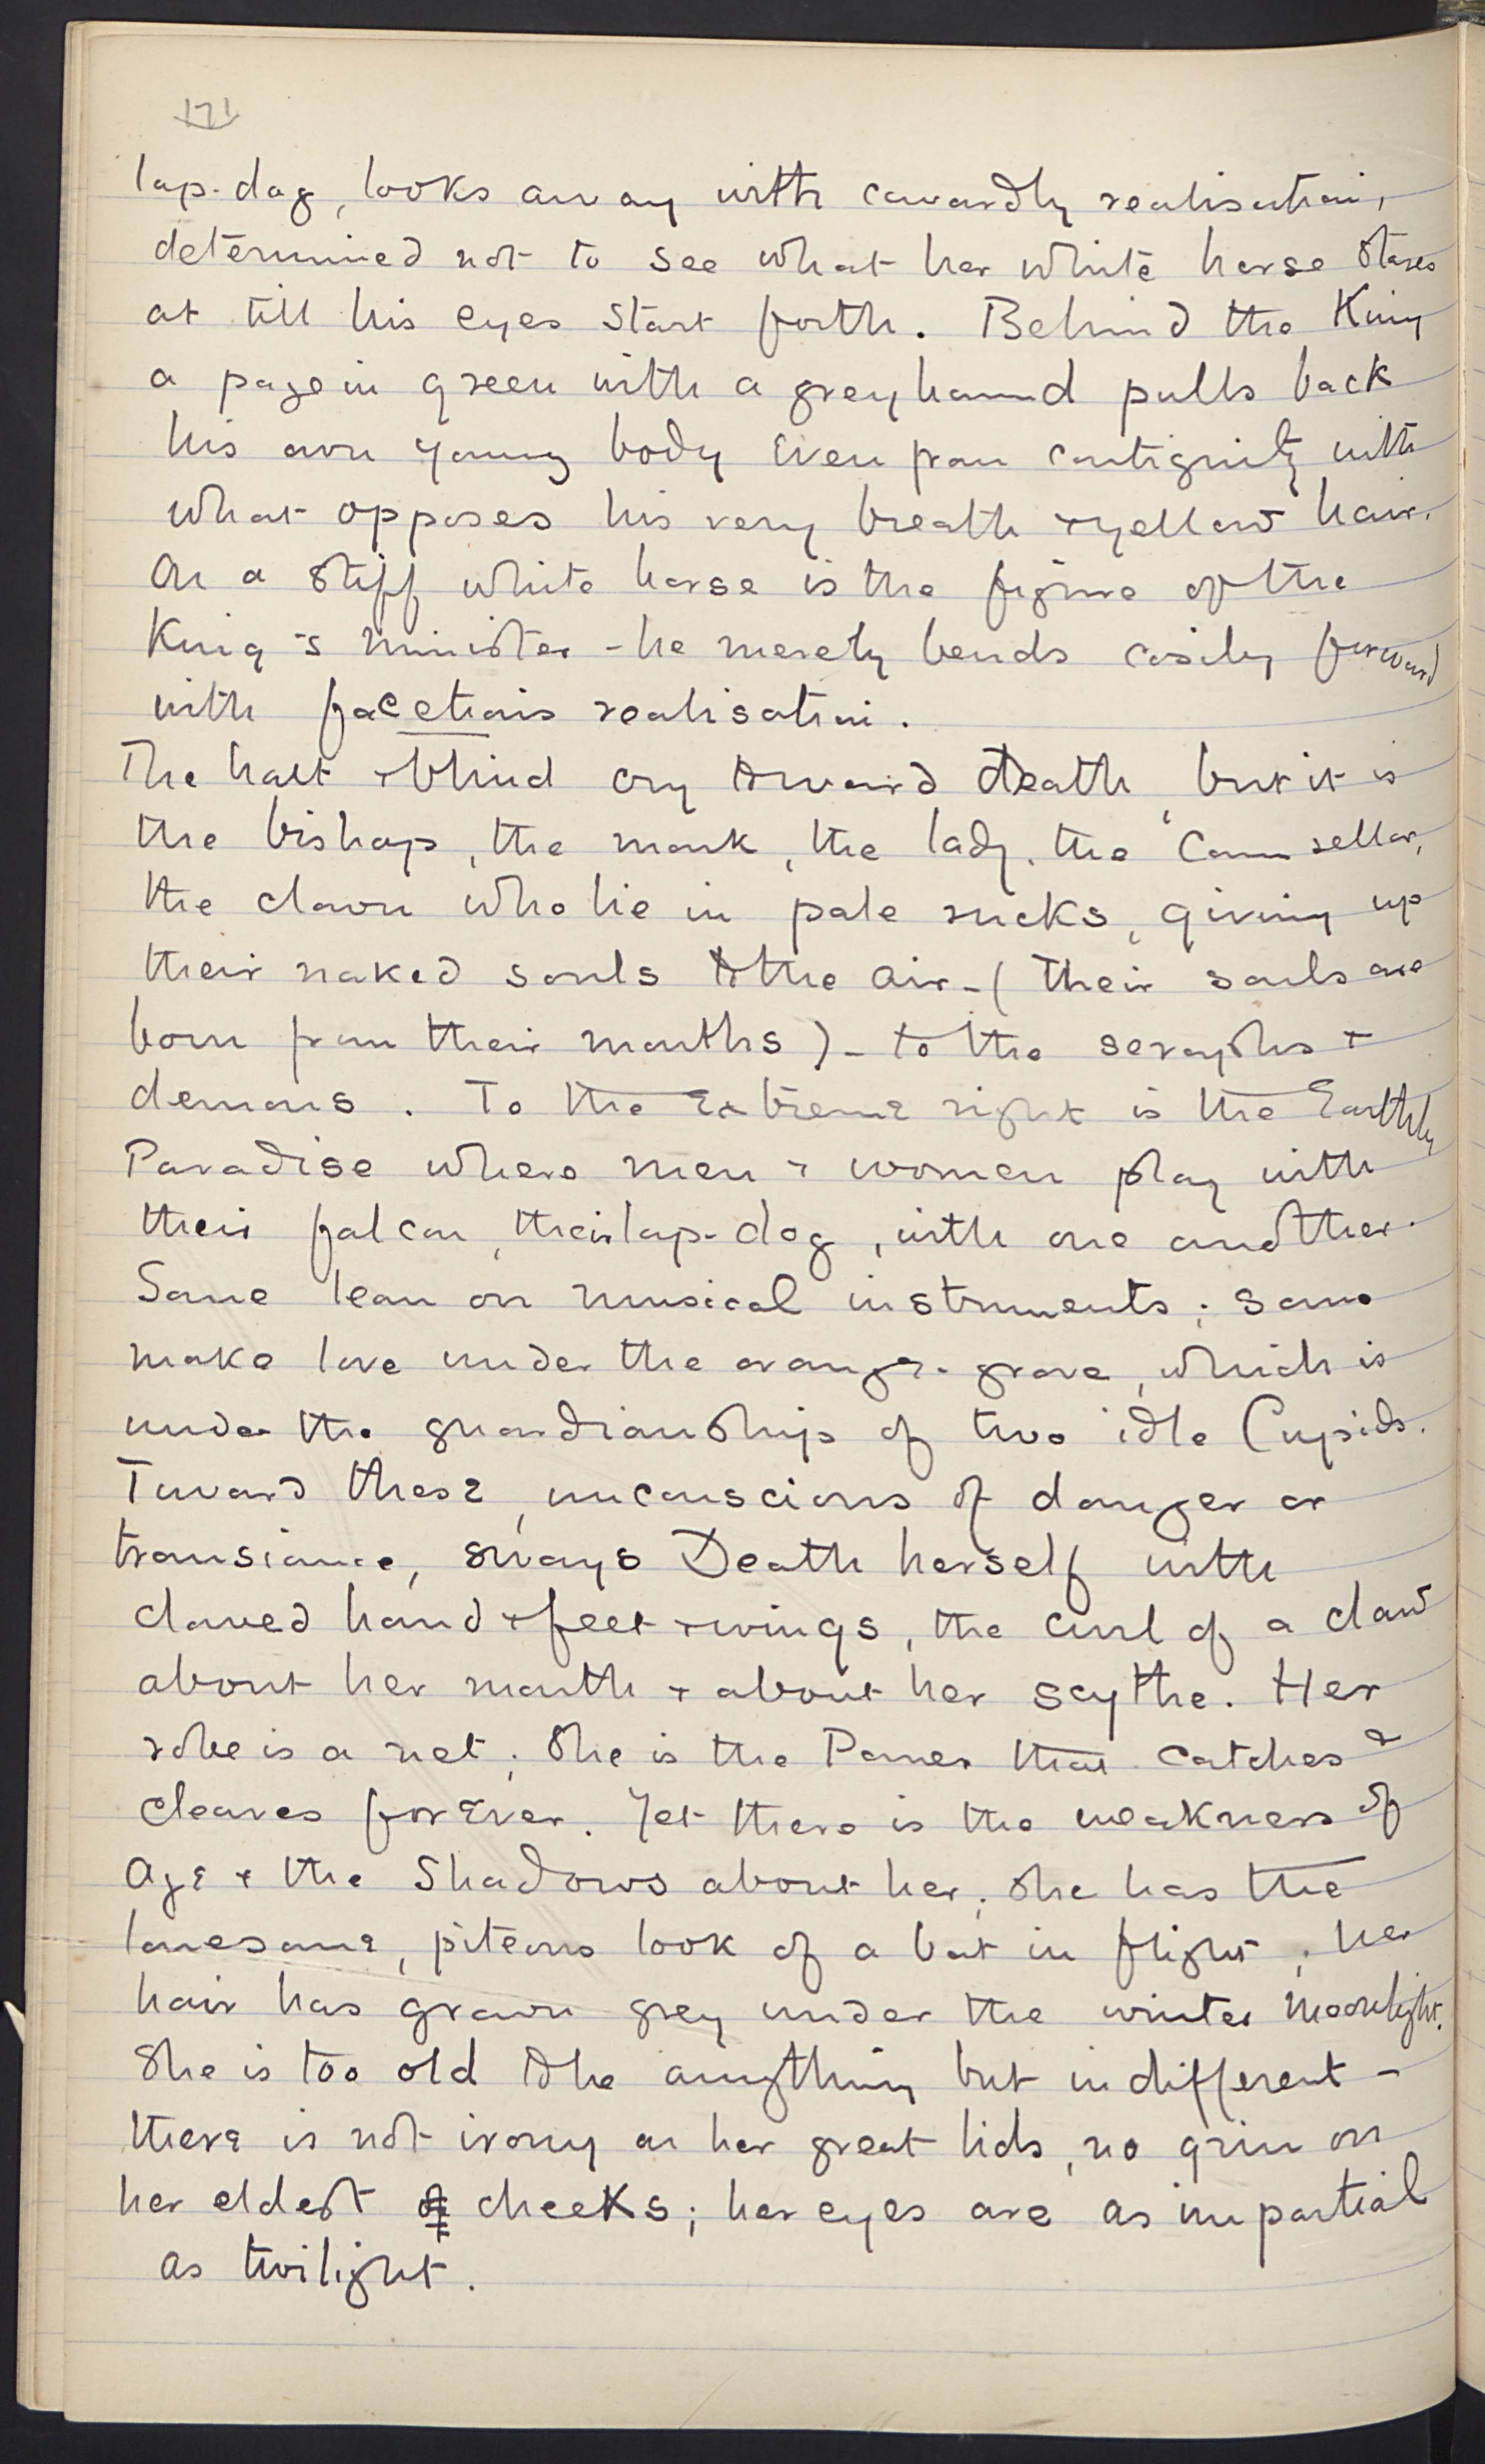 171
lap-dog, looks away with cowardly realisation,
determined not to see what her white horse stares
at till his eyes start forth. Behind the King
a page in green with a greyhound pulls back
his own young body even from contiguity with
what opposes his very breath & yellow hair.
On a stiff white horse is the figure of the
King's minister - he merely bends cosily forward
with facetious realisation.
The halt & blind cry toward death, but it is
the bishop, the monk, the lady, the counsellor,
the clown who lie in pale rucks, giving up
their naked souls to the air - (their souls are
born from their mouths) - to the seraphs &
demons. To the extreme right is the Earthly
Paradise where men & women play with
their falcon, their lap-dog, with one another.
Some lean on musical instruments; some
make love under the orange-grove, which is
under the guardianship of two idle Cupids.
Toward these, unconscious of danger or
transiance, sways Death herself with
clawed hand & feet & wings, the curl of a claw
about her mouth & about her scythe. Her
robe is a net; she is the Power that catches &
cleaves forever. Yet there is the weakness of
Age & the Shadows about her; she has the
lonesome, piteous look of a bat in flight; her
hair has grown grey under the winter moonlight.
She is too old to be anything but indifferent -
there is not irony on her great lids, no grin on
her eldest of cheeks; her eyes are as impartial
as twilight.